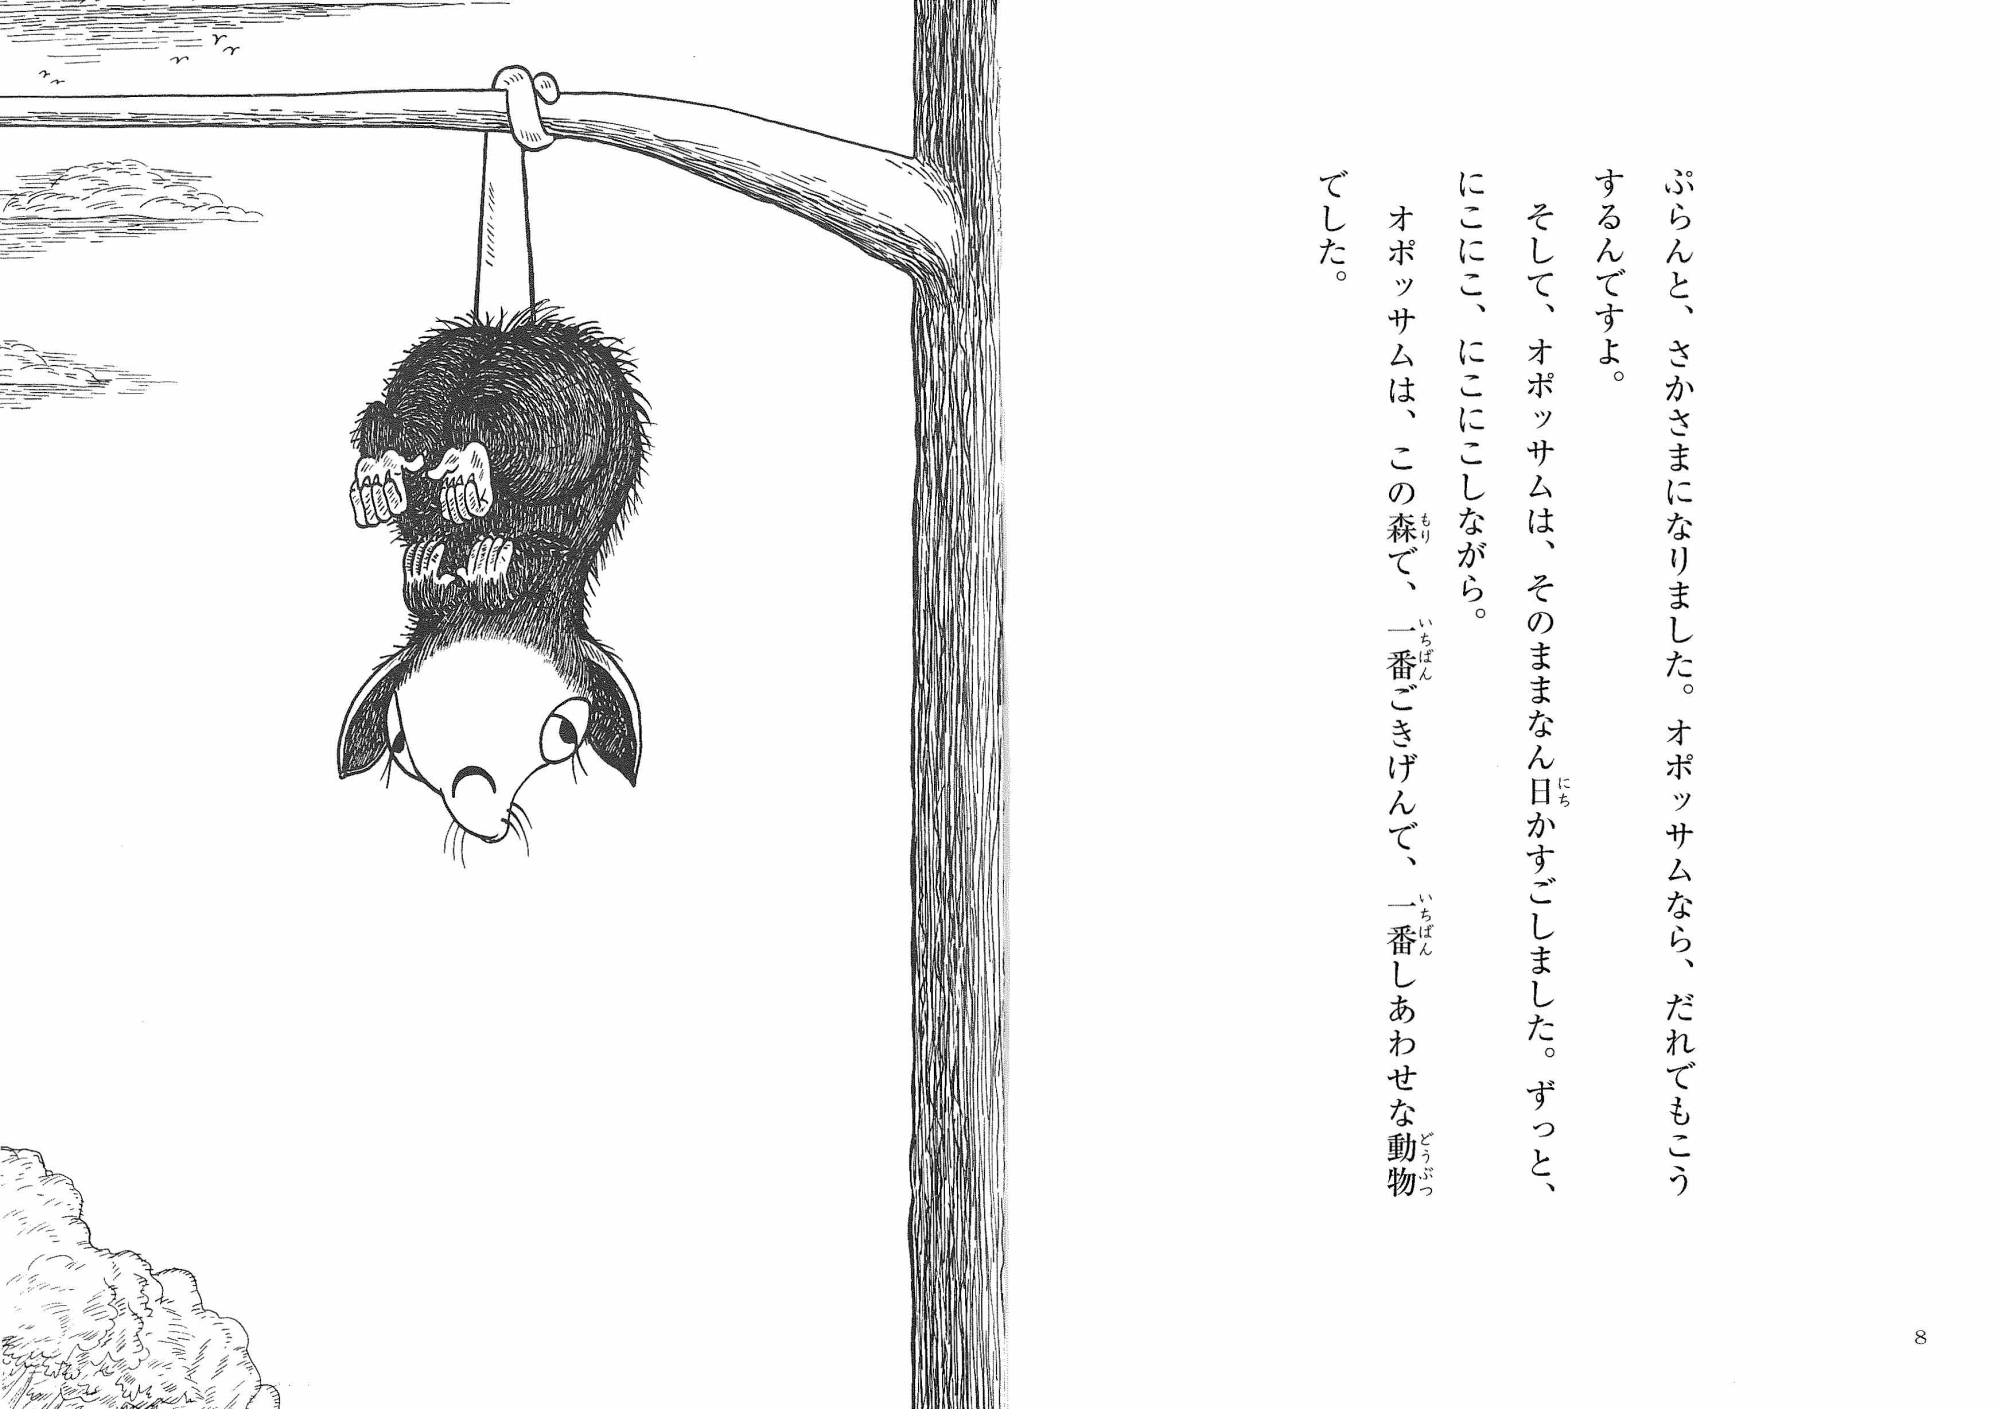 ぷらんと、さかさまになりました。オポッサムなら、だれでもこう
するんですよ。
そして、オポッサムは、そのままなん日かすごしました。ずっと、
にこにこ、にこにこしながら。
オポッサムは、この森で、一番ごきげんで、一番しあわせな動物
でした。
にち
もり
いちばん
いちばん
どうぶつ
8